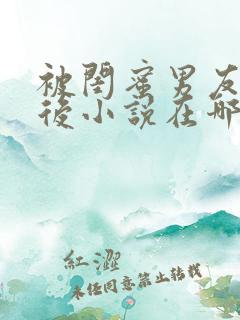 被閨蜜男友
後小說在哪
紅澀
未任同意禁止转载